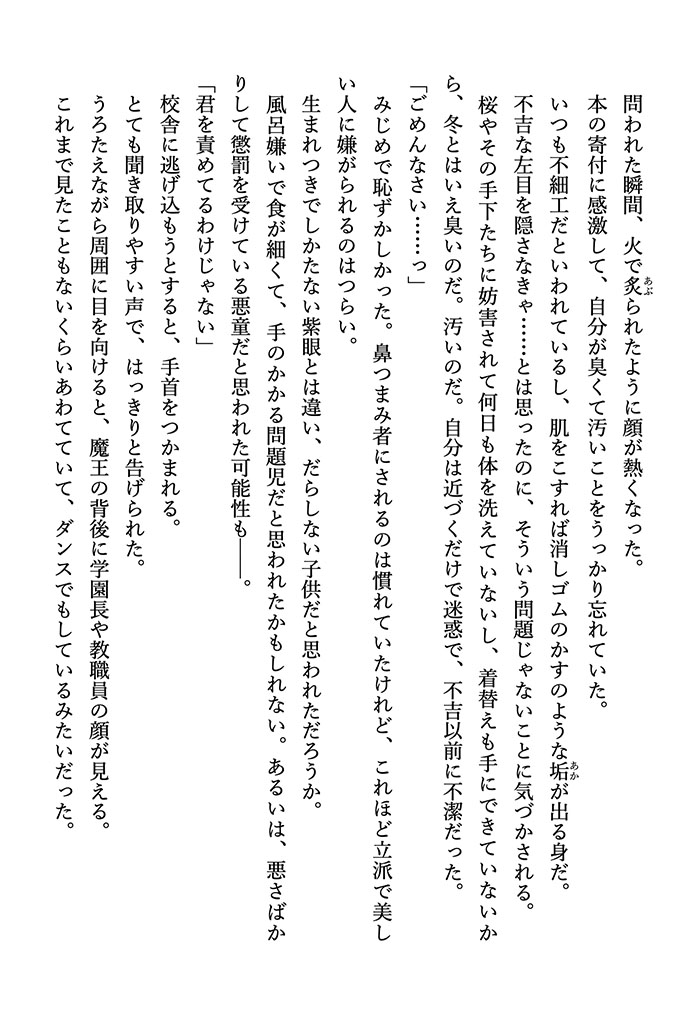 問われた瞬間、火で炙られたように顔が熱くなった。
本の寄付に感激して、自分が臭くて汚いことをうっかり忘れていた。
いつも不細工だといわれているし、肌をこすれば消しゴムのかすのような垢が出る身だ。
不吉な左目を隠さなきゃ……とは思ったのに、そういう問題じゃないことに気づかされる。
桜やその手下たちに妨害されて何日も体を洗えていないし、着替えも手にできていないか
ら、冬とはいえ臭いのだ。汚いのだ。自分は近づくだけで迷惑で、不吉以前に不潔だった。
「ごめんなさい……っ」
みじめで恥ずかしかった。鼻つまみ者にされるのは慣れていたけれど、これほど立派で美し
い人に嫌がられるのはつらい。
生まれつきでしかたない紫眼とは違い、だらしない子供だと思われただろうか。
風呂嫌いで食が細くて、手のかかる問題児だと思われたかもしれない。あるいは、悪さばか
りして懲罰を受けている悪童だと思われた可能性も――。
「君を責めてるわけじゃない」
校舎に逃げ込もうとすると、手首をつかまれる。
とても聞き取りやすい声で、はっきりと告げられた。
うろたえながら周囲に目を向けると、魔王の背後に学園長や教職員の顔が見える。
これまで見たこともないくらいあわてていて、ダンスでもしているみたいだった。
あぶ
あか